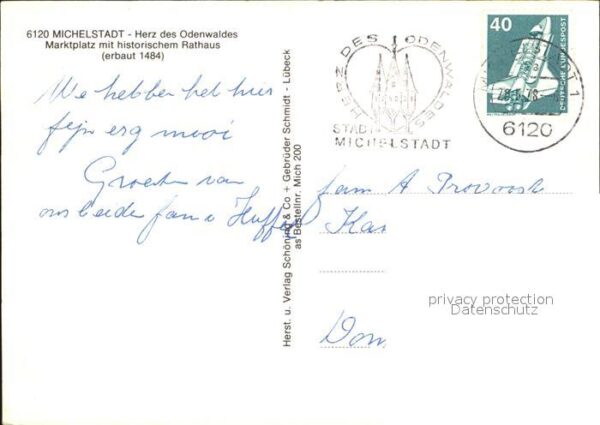 6120 MICHELSTADT - Herz des Odenwaldes
Marktplatz mit historischem Rathaus
(erbaut 1484)
We hebben het hier
fijn erg mooi
Groeten van
ons beide fam
Herst. u. Verlag Schöning & Co + Gebrüder Schmidt - Lübeck
as Bestellnr. Mich 200
HERZ DES ODENWALDES
STADT
MICHELSTADT
40
DEUTSCHE BUNDESPOST
6120
fam A Provoost
Kas
Dom
privacy protection
Datenschutz